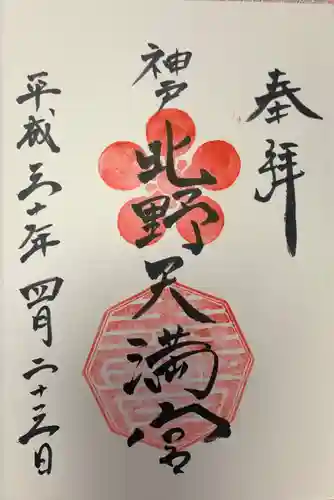 奉拝
神戸
北野天満宮
平成三十年四月二十三日